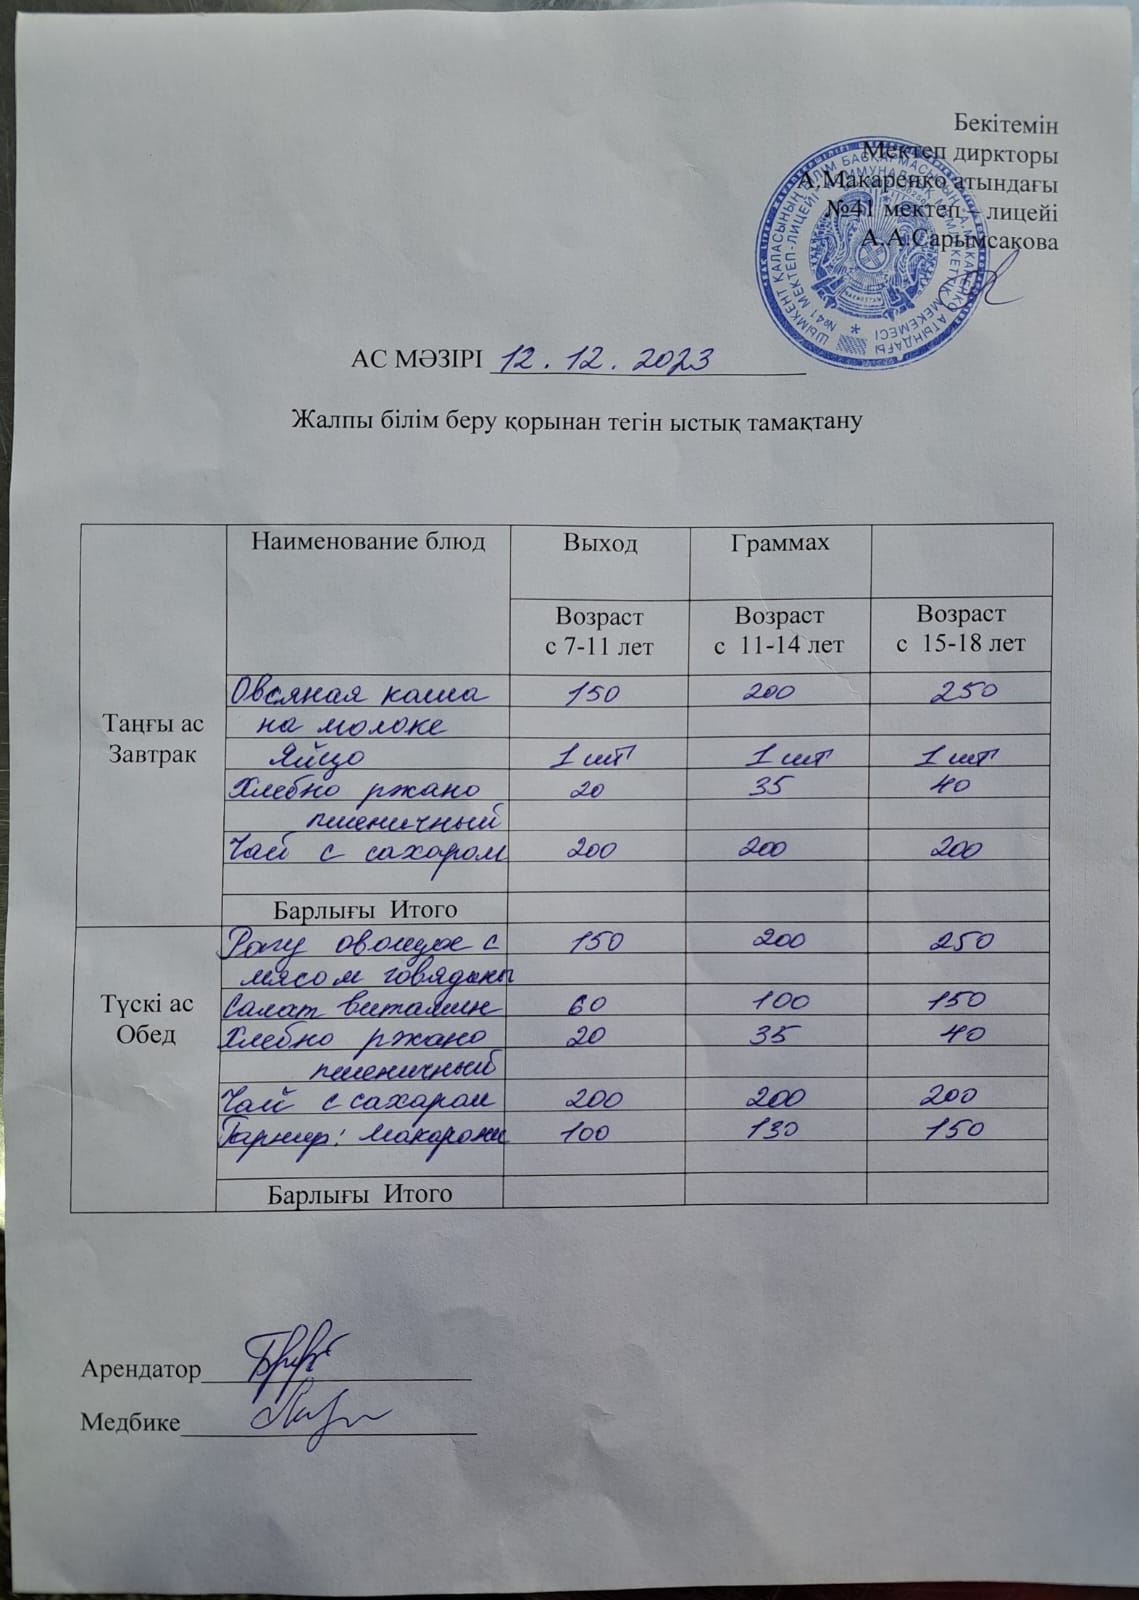 Бекітемін
Мектеп диркторы
А.Макаренко атындағы
№41 мектеп – лицейі
А.А.Сарымсақова
АС МӘЗІРІ 12.12.2023
Жалпы білім беру қорынан тегін ыстық тамақтану
Наименование блюд Выход Граммах
Возраст с 7-11 лет Возраст с 11-14 лет Возраст с 15-18 лет
Таңғы ас
Завтрак
Овсяная каша 150 200 250
на молоке
Яйцо 1 шт 1 шт 1 шт
Хлебно ржано 20 35 40
пшеничный
Чай с сахаром 200 200 200
Барлығы Итого
Түскі ас
Обед
Рагу овощное с 150 200 250
мясом говядины
Салат витамин 60 100 150
Хлебно ржано 20 35 40
пшеничный
Чай с сахаром 200 200 200
Гарнир: макароны 100 130 150
Барлығы Итого
Арендатор
Медбике